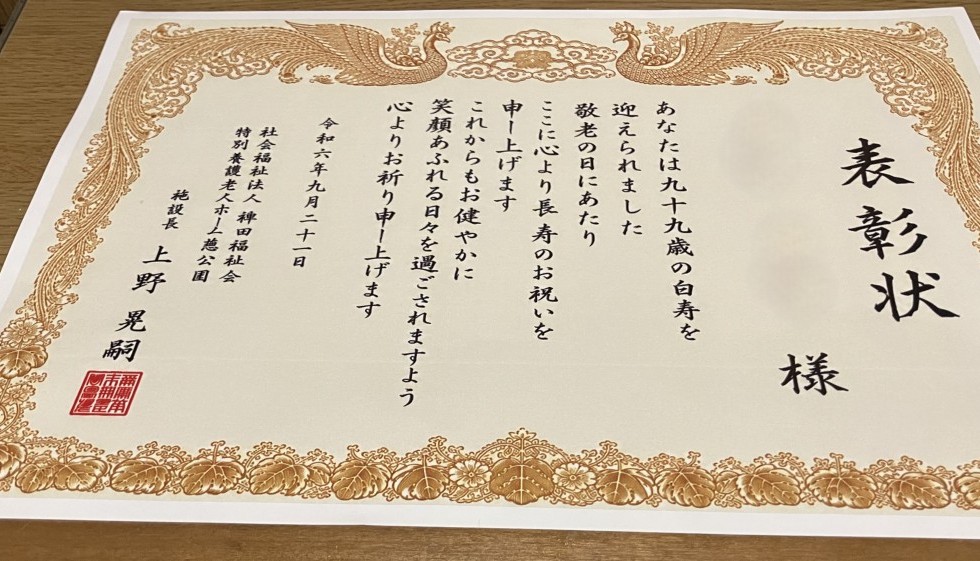 表彰状
様
あなたは九十九歳の白寿を
迎えられました
敬老の日にあたり
ここに心より長寿のお祝いを
申し上げます
これからもお健やかに
笑顔あふれる日々を過ごされますよう
心よりお祈り申し上げます
令和六年九月二十一日
社会福祉法人 稗田福祉会
特別養護老人ホーム慈公園
施設長 上野 晃嗣